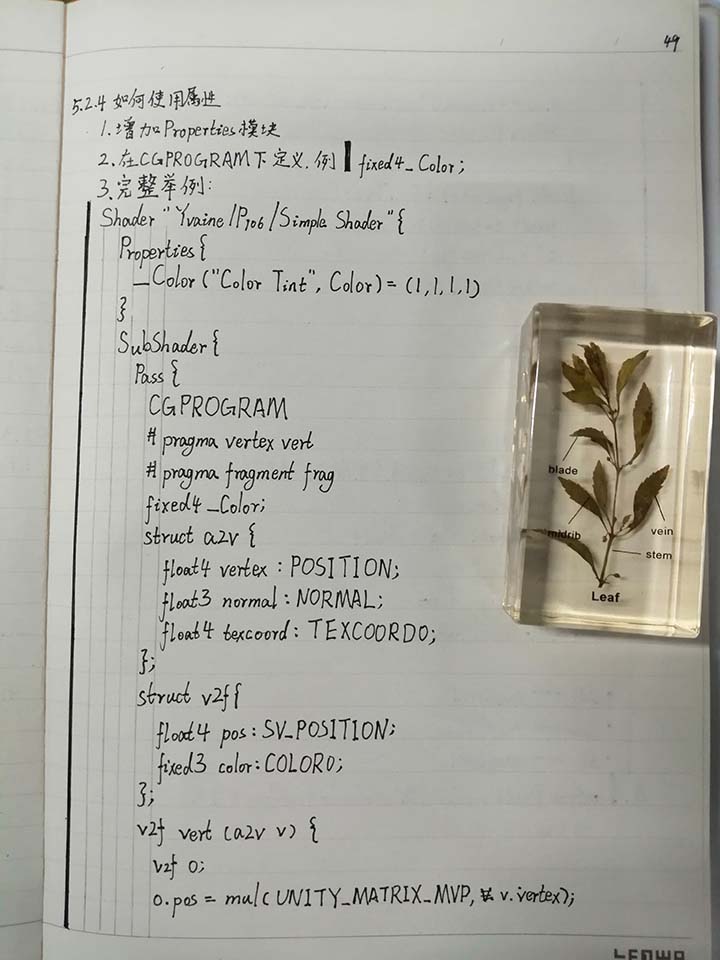 49
5.2.4 如何使用属性
1.增加Properties模块
2.在CGPROGRAM下定义.例 fixed4_Color;
3.完整举例:
Shader "Yvaine/P106/Simple Shader"{
Properties{
_Color("Color Tint", Color)=(1,1,1,1)
}
SubShader{
Pass{
CGPROGRAM
#pragma vertex vert
#pragma fragment frag
fixed4 _Color;
struct a2v {
float4 vertex : POSITION;
float3 normal : NORMAL;
float4 texcoord : TEXCOORD0;
};
struct v2f{
float4 pos : SV_POSITION;
fixed3 color : COLOR0;
};
v2f vert (a2v v) {
v2f o;
o.pos = mul( UNITY_MATRIX_MVP, v.vertex);
blade
midrib
vein
stem
Leaf